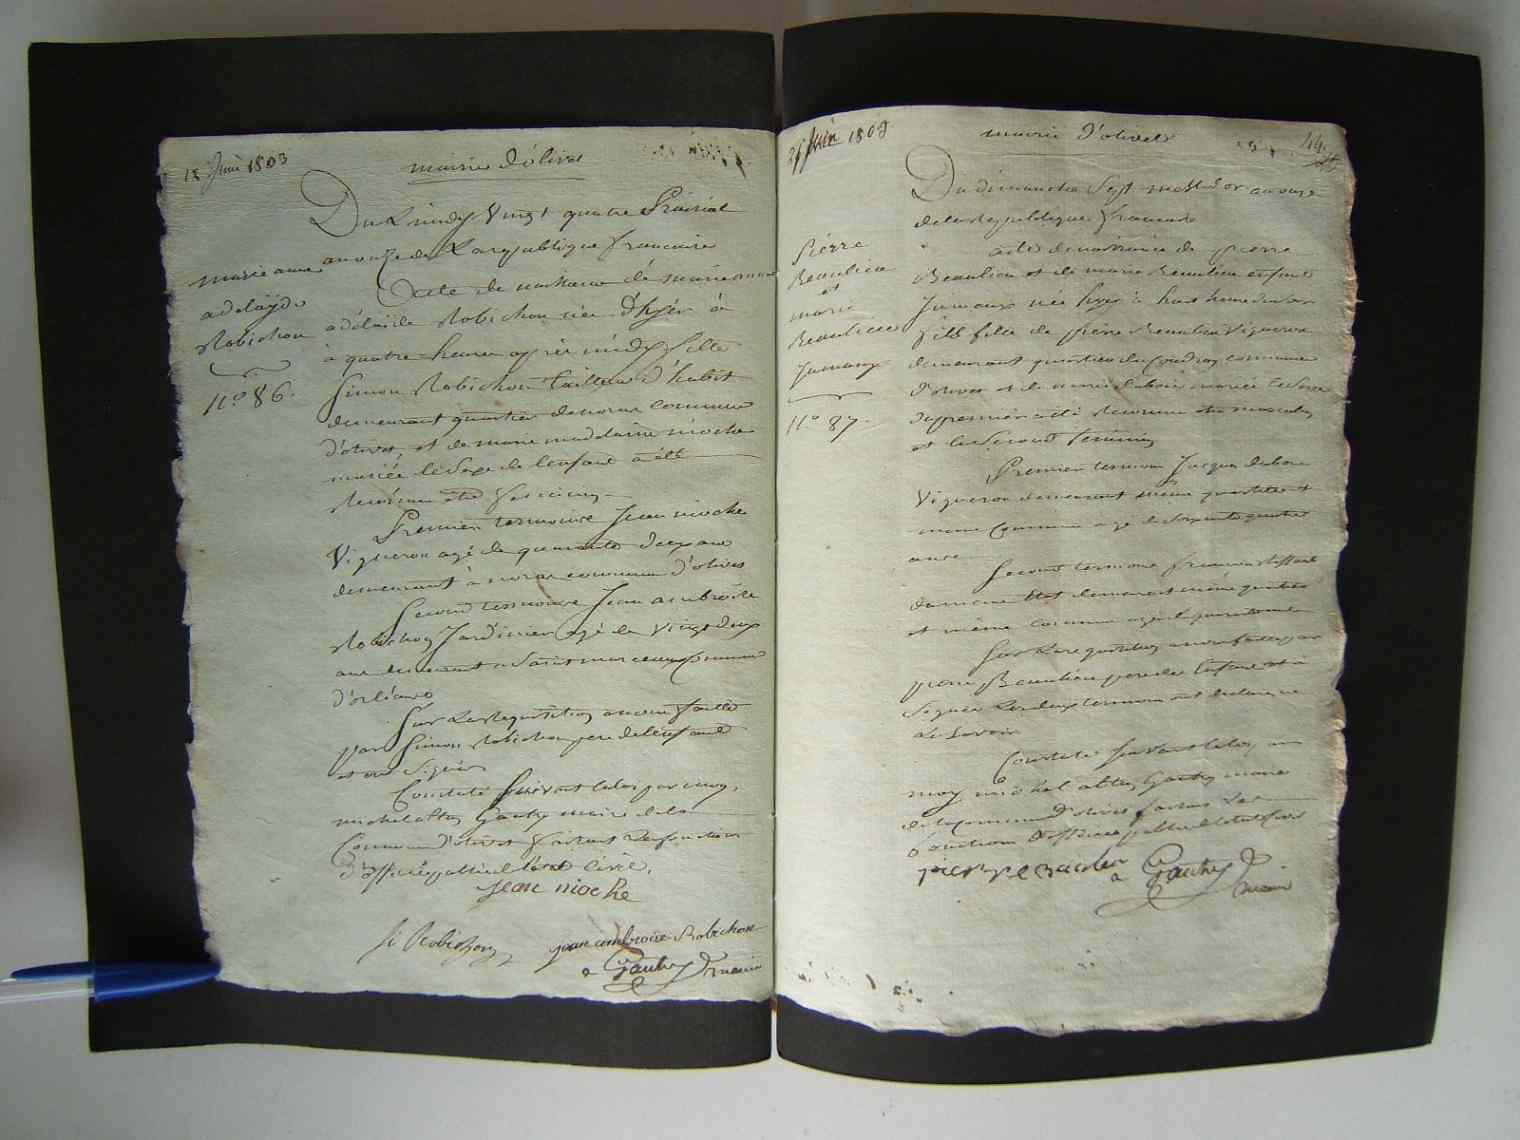 13 Juin 1803
mairie d'olivet
Du Lundy Vingt quatre Prairial
an onze de La republique francaise
marie anne
adelayde
Robichon
n.° 86.
Acte de naissance de marie anne
adelaïde Robichon née d'hyer à
à quatre heures apres midy fille
Simon Robichon tailleur d'habit
demeurant quartier de noras commune
d'olivet, et de marie madelaine nioche
mariée le Sexe de lenfant a été
Reconnu etre feminin
Premier temoin Jean nioche
Vigneron agé de quarante deux ans
demeurant à noras commune d'olivet
Second temoin Jean ambroise
Robichon Jardinier agé de Vingt deux
ans demeurant a Saint marceau Commune
d'orléans
Sur La requisition a nous faitte
par Simon Robichon pere de lenfant
et ont Signés
Constaté Suivant la loi par moy
michel Gautry maire de la
Commune d'olivet faisant Les fonctions
d'officier public de l'état Civil.
jean nioche
Si Robichon
jean ambroise Robichon
Gautry maire
Juin 1803
mairie d'olivet
44
Du dimanche Sept messidor an onze
de la republique francaise
Pierre
Beaulieu
et
marie
Beaulieu
Jumaux
n.° 87.
acte de naissance de pierre
Beaulieu et de marie Beaulieu enfants
Jumaux née hyer à huit heures du soir
fils fille de pierre Beaulieu Vigneron
demeurant quartier du Coudray commune
d'olivet et de marie dubois mariée le Sexe
du premier a été Reconnu etre masculin
et le Second feminin
Premier temoin Jacques dubois
Vigneron demeurant même quartier et
même Commune agé de Soixante quatre
ans
Second temoin
du même Etat demeurant même quartier
et même commune agé de quarante
Sur La requisition a nous faitte par
pierre Beaulieu pere de lenfant et a
Signé Les deux temoins ont declaré ne
Le Savoir
Constaté Suivant la loy par
moy michel Gautry maire
de la Commune d'olivet faisant Les
fonctions d'officier public de l'etat Civil
Gautry
maire